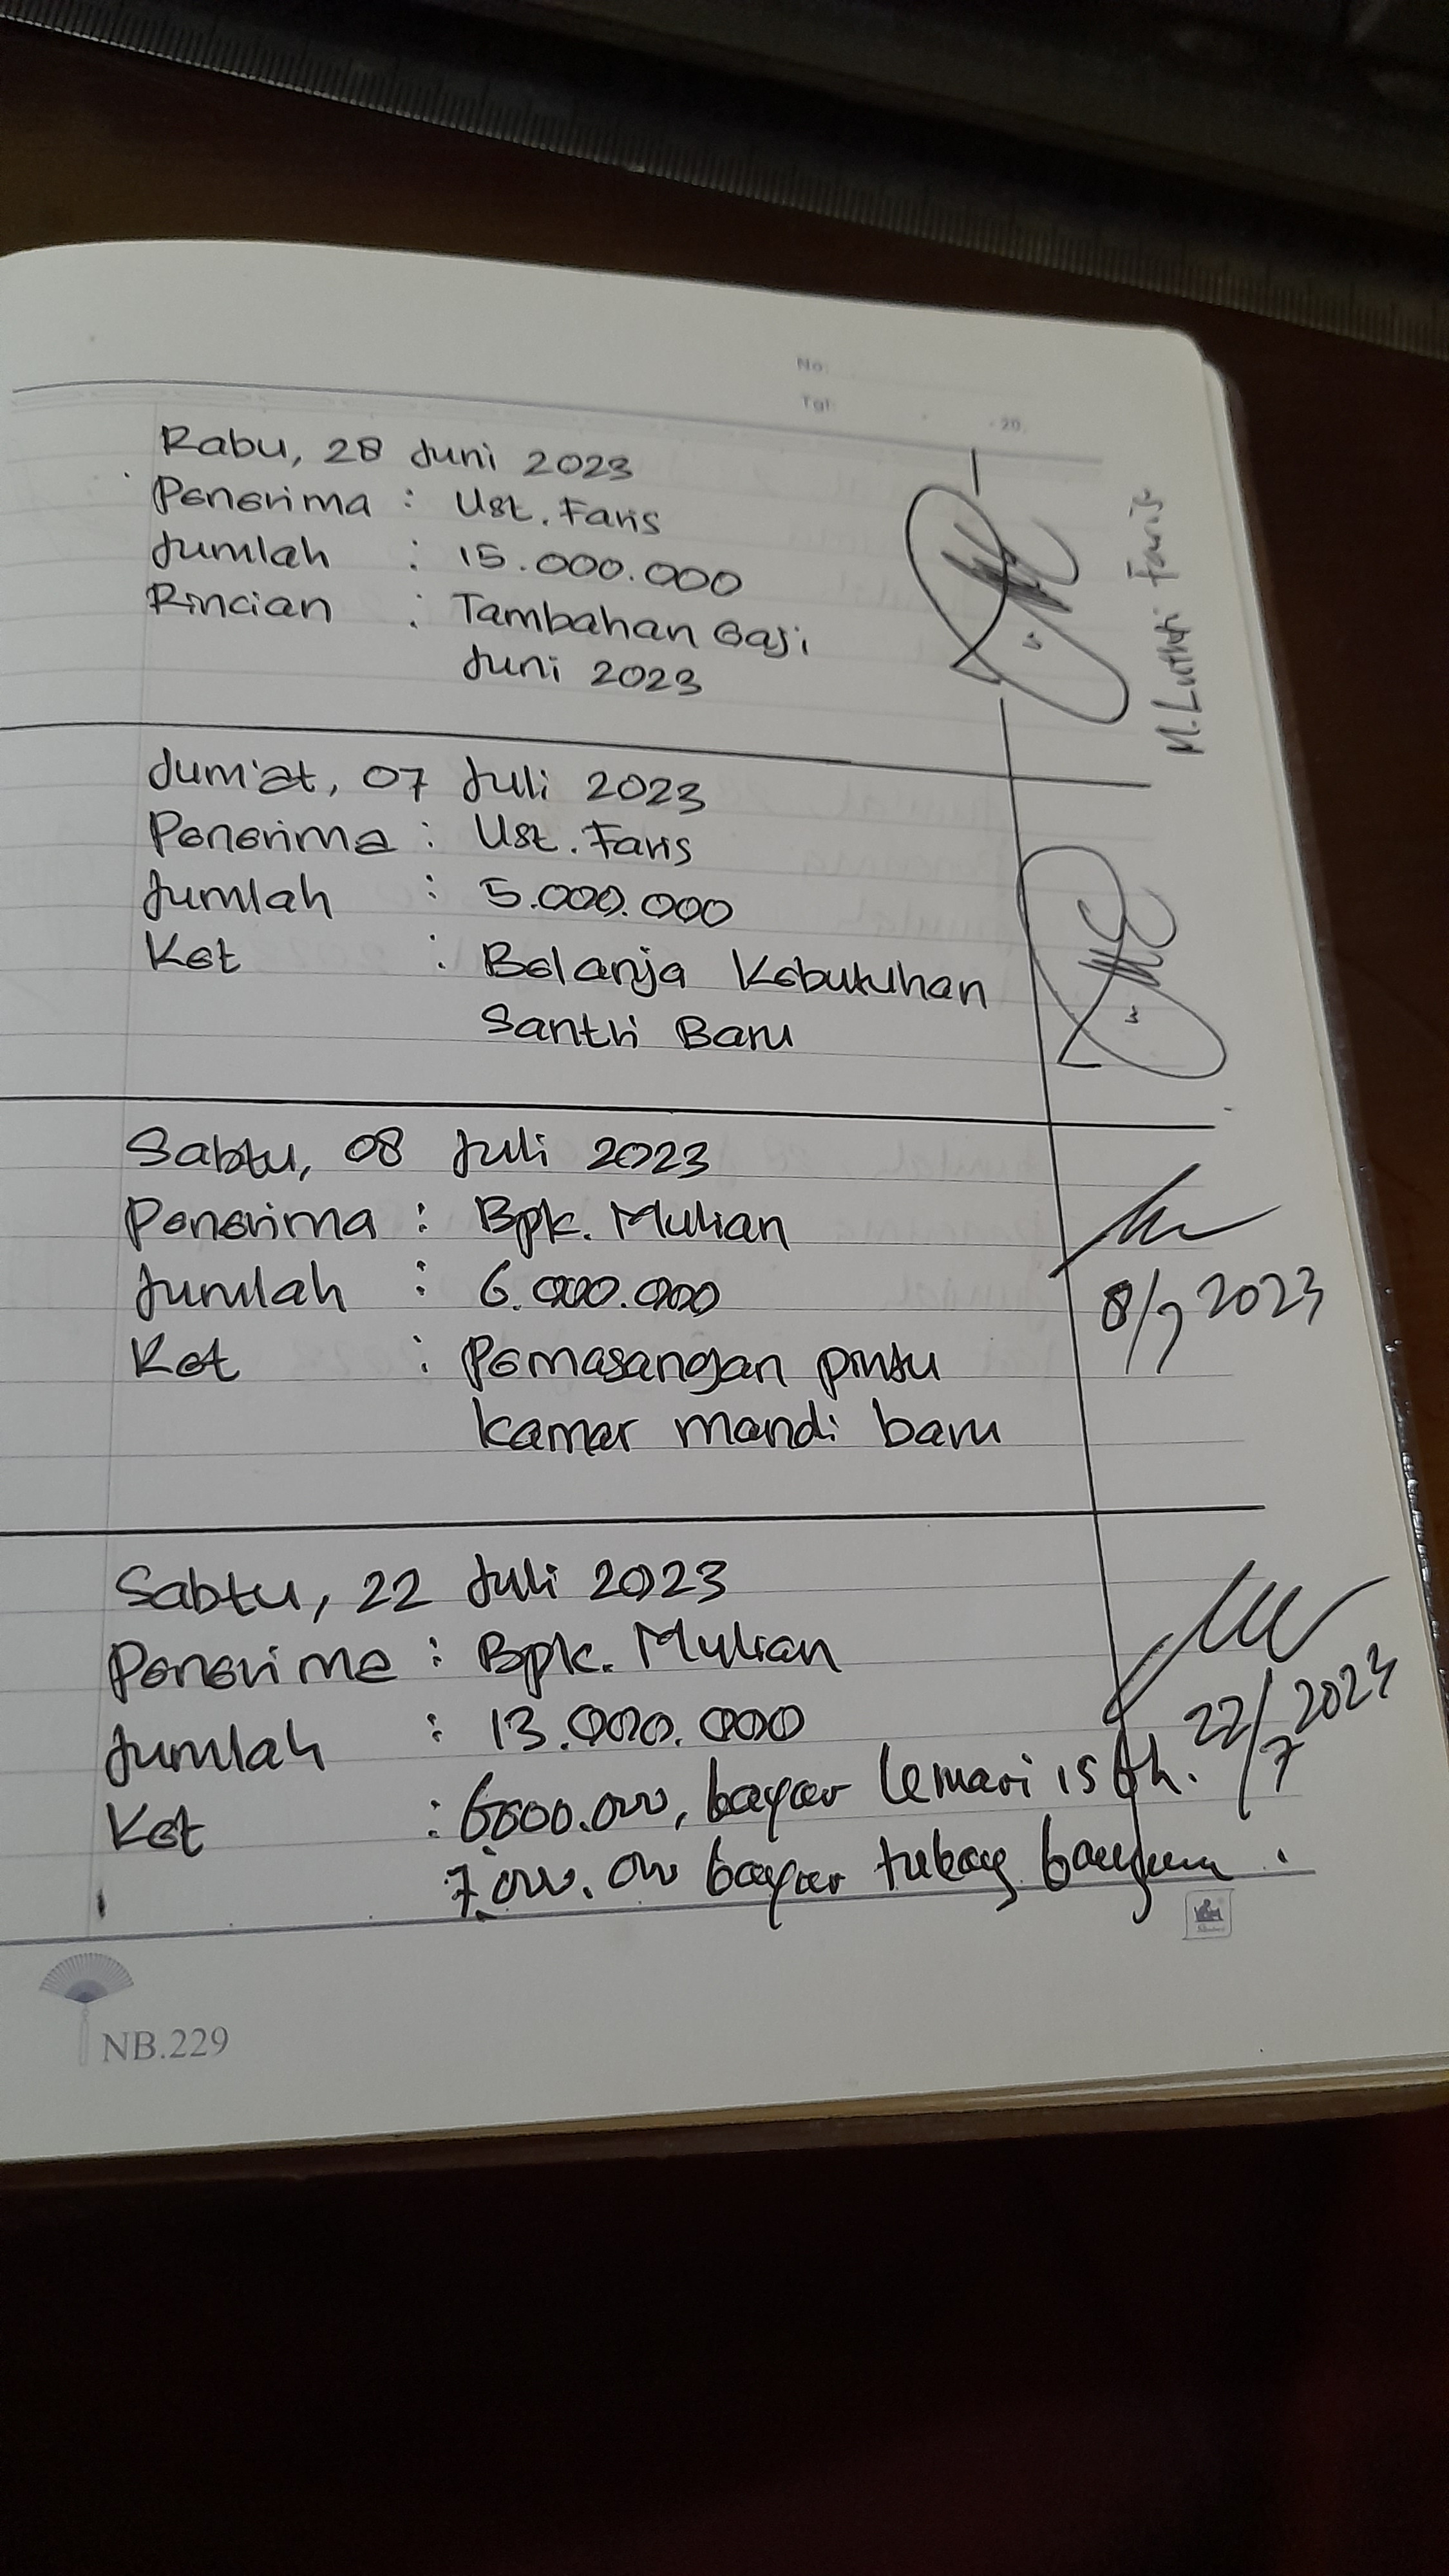 No:
Tgl: - 20
Rabu, 28 Juni 2023
Penerima : Ust. Faris
Jumlah : 15.000.000
Rincian : Tambahan Gaji
Juni 2023
M. Luthfi Faris
Jum'at, 07 Juli 2023
Penerima : Ust. Faris
Jumlah : 5.000.000
Ket : Belanja Kebutuhan
Santri Baru
Sabtu, 08 Juli 2023
Penerima : Bpk. Mulian
Jumlah : 6.000.000
Ket : Pemasangan pintu
kamar mandi baru
8/7 2023
Sabtu, 22 Juli 2023
Penerima : Bpk. Mulian
Jumlah : 13.000.000
22/7 2023
Ket : 6000.000, bayar lemari 15 bh.
7.000.000 bayar tukang bangunan.
NB.229